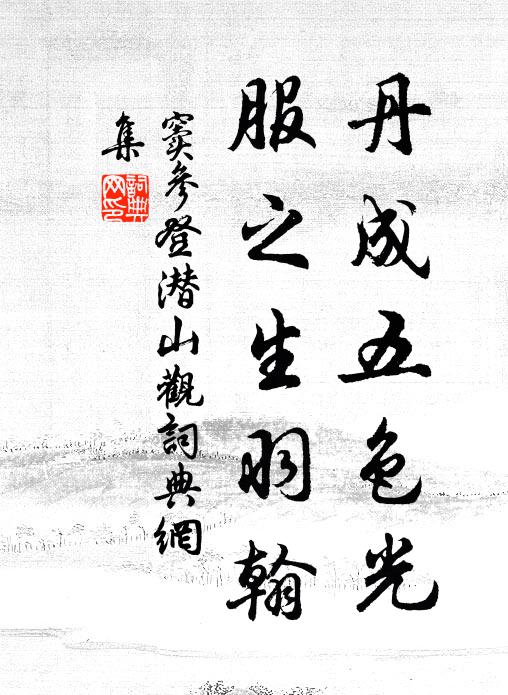 丹成五色光
服之生羽翰
窦参登潜山觀詞典網
集
詞典
网印